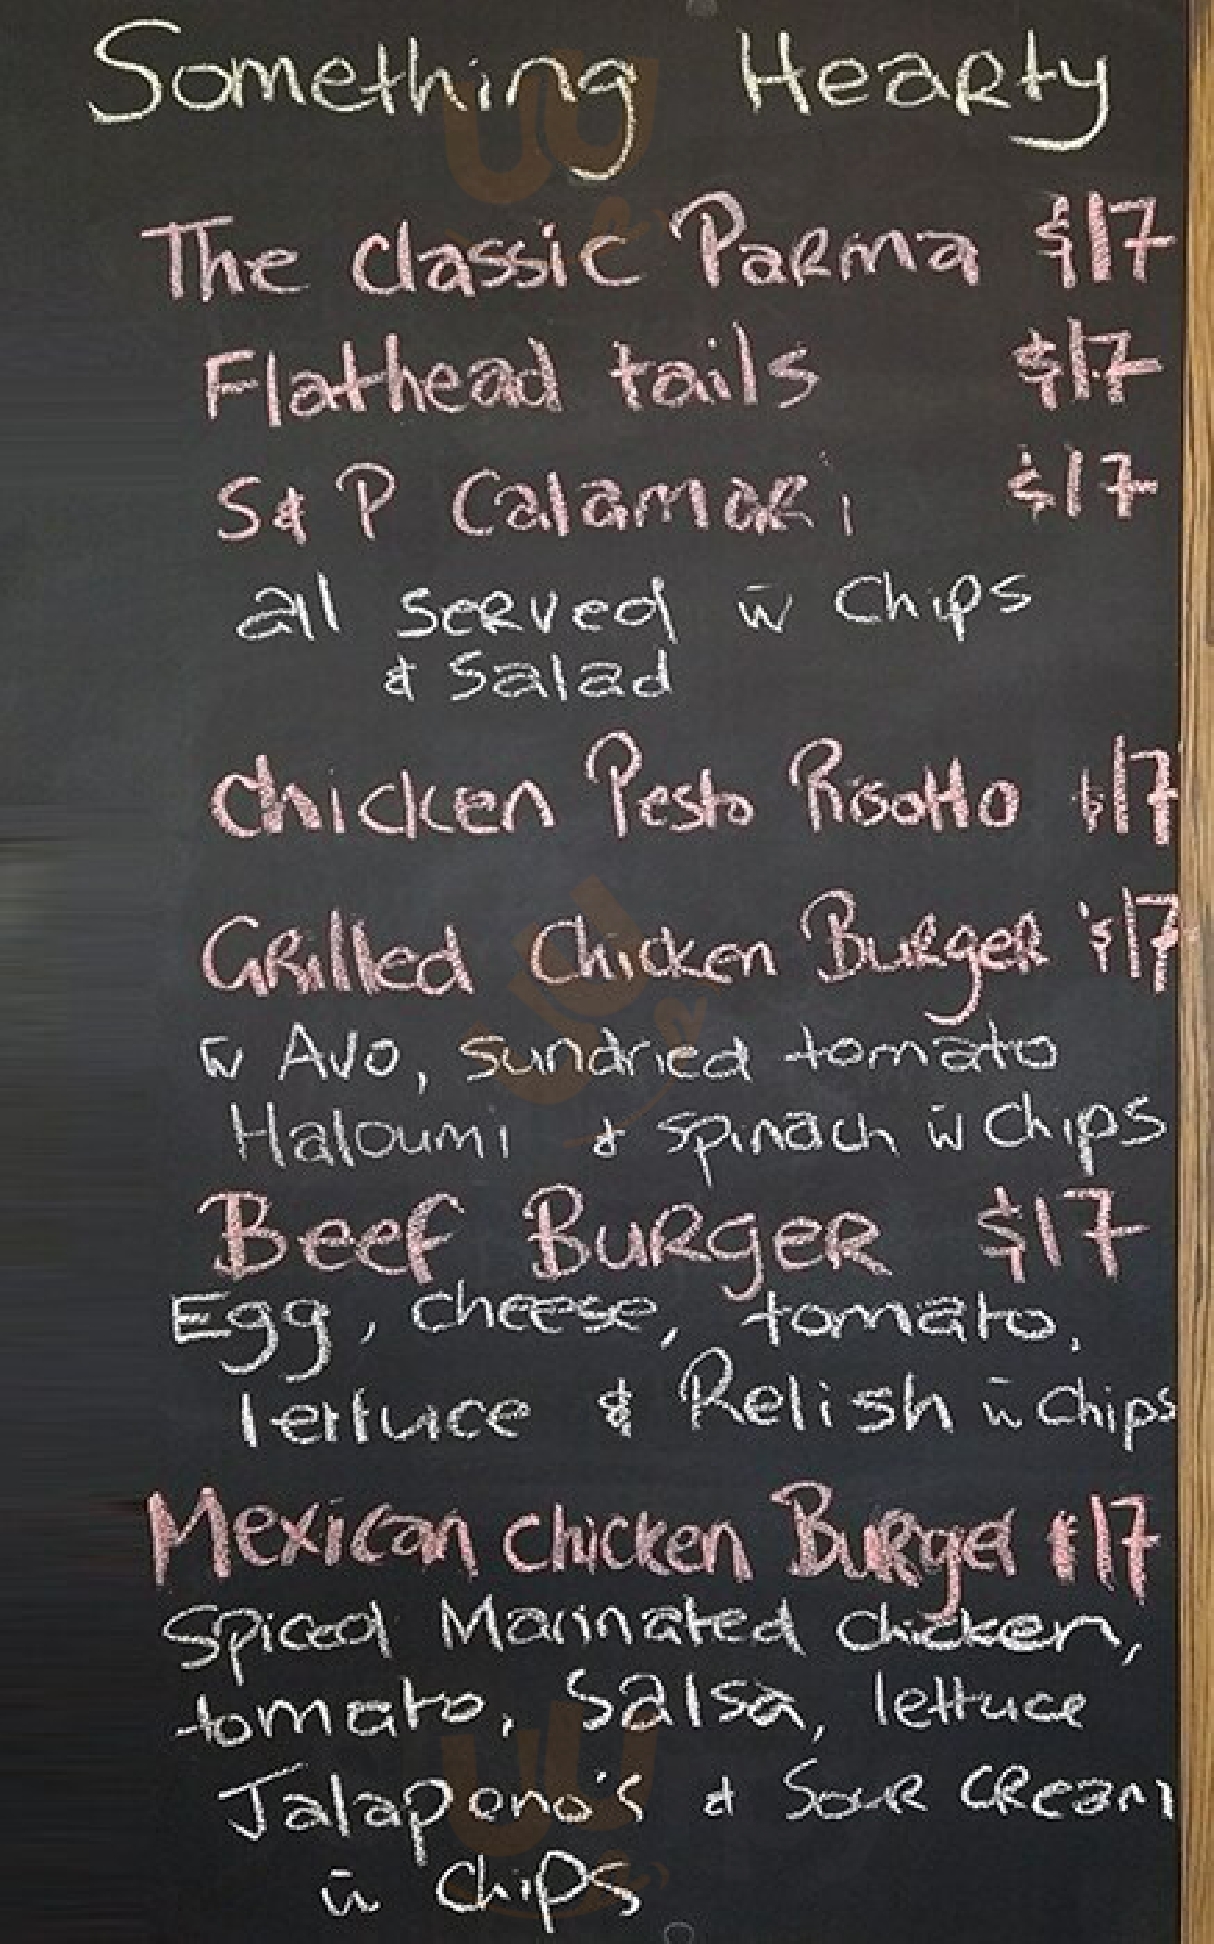 Something Hearty
The classic Parma $17
Flathead tails $17
S & P Calamari $17
all served w̄ Chips
& Salad
Chicken Pesto Risotto $17
Grilled Chicken Burger $17
w̄ Avo, sundried tomato
Haloumi & spinach w̄ Chips
Beef Burger $17
Egg, cheese, tomato,
lettuce & Relish w̄ Chips
Mexican chicken Burger $17
Spiced Marinated chicken,
tomato, Salsa, lettuce
Jalapeno's & Sour Cream
w̄ Chips